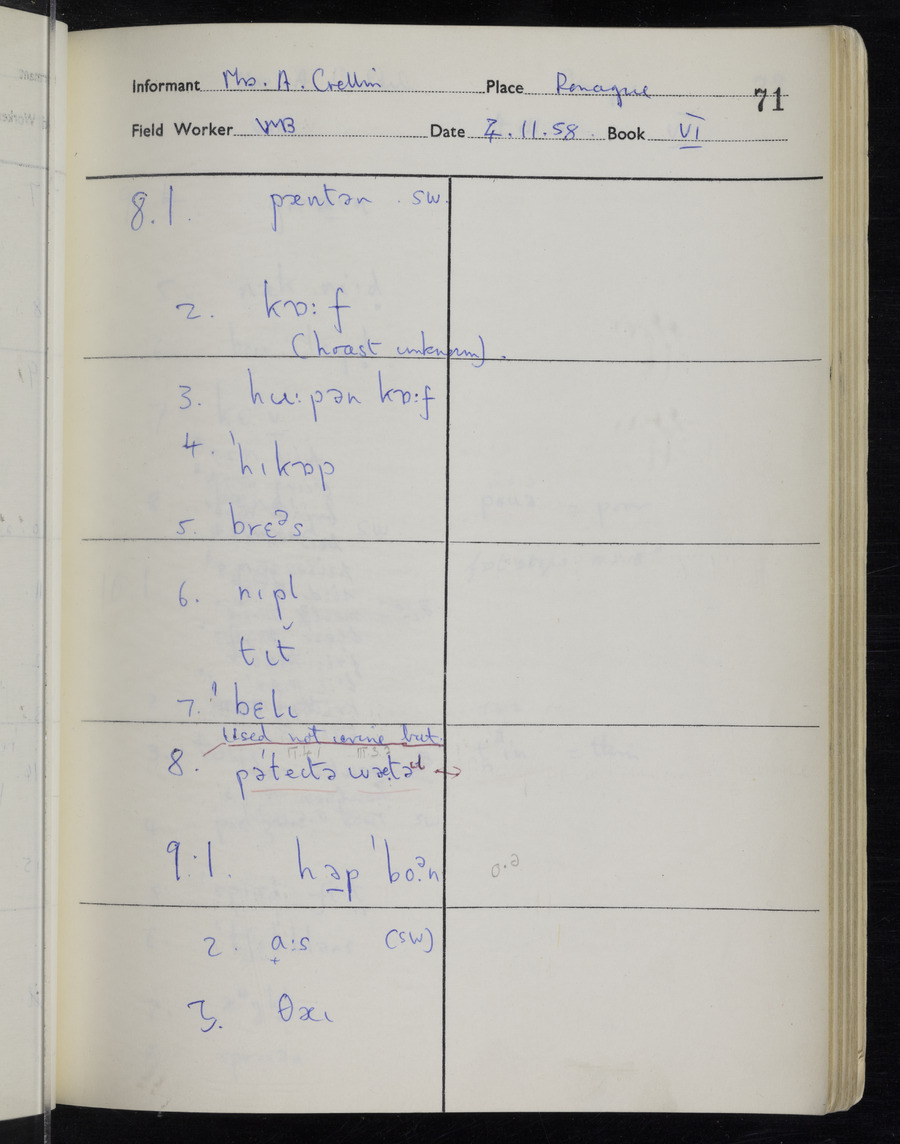 Informant Mrs. A. Crellin Place Ronague
71
Field Worker VMB Date 7.11.58. Book VI
8.1. pæntən . sw.
2. kɒ:f
(hoast unknown).
3. hu:pən kɒ:f
4. 'hıkɒp
5. brɛᵊs
6. nıpl
tıt
7. 'bɛlı
Used not urine but
8. pə'tectə wætə →
9.1. həp 'bo.ᵊn o.ə
2. a:s (sw)
3. θæı